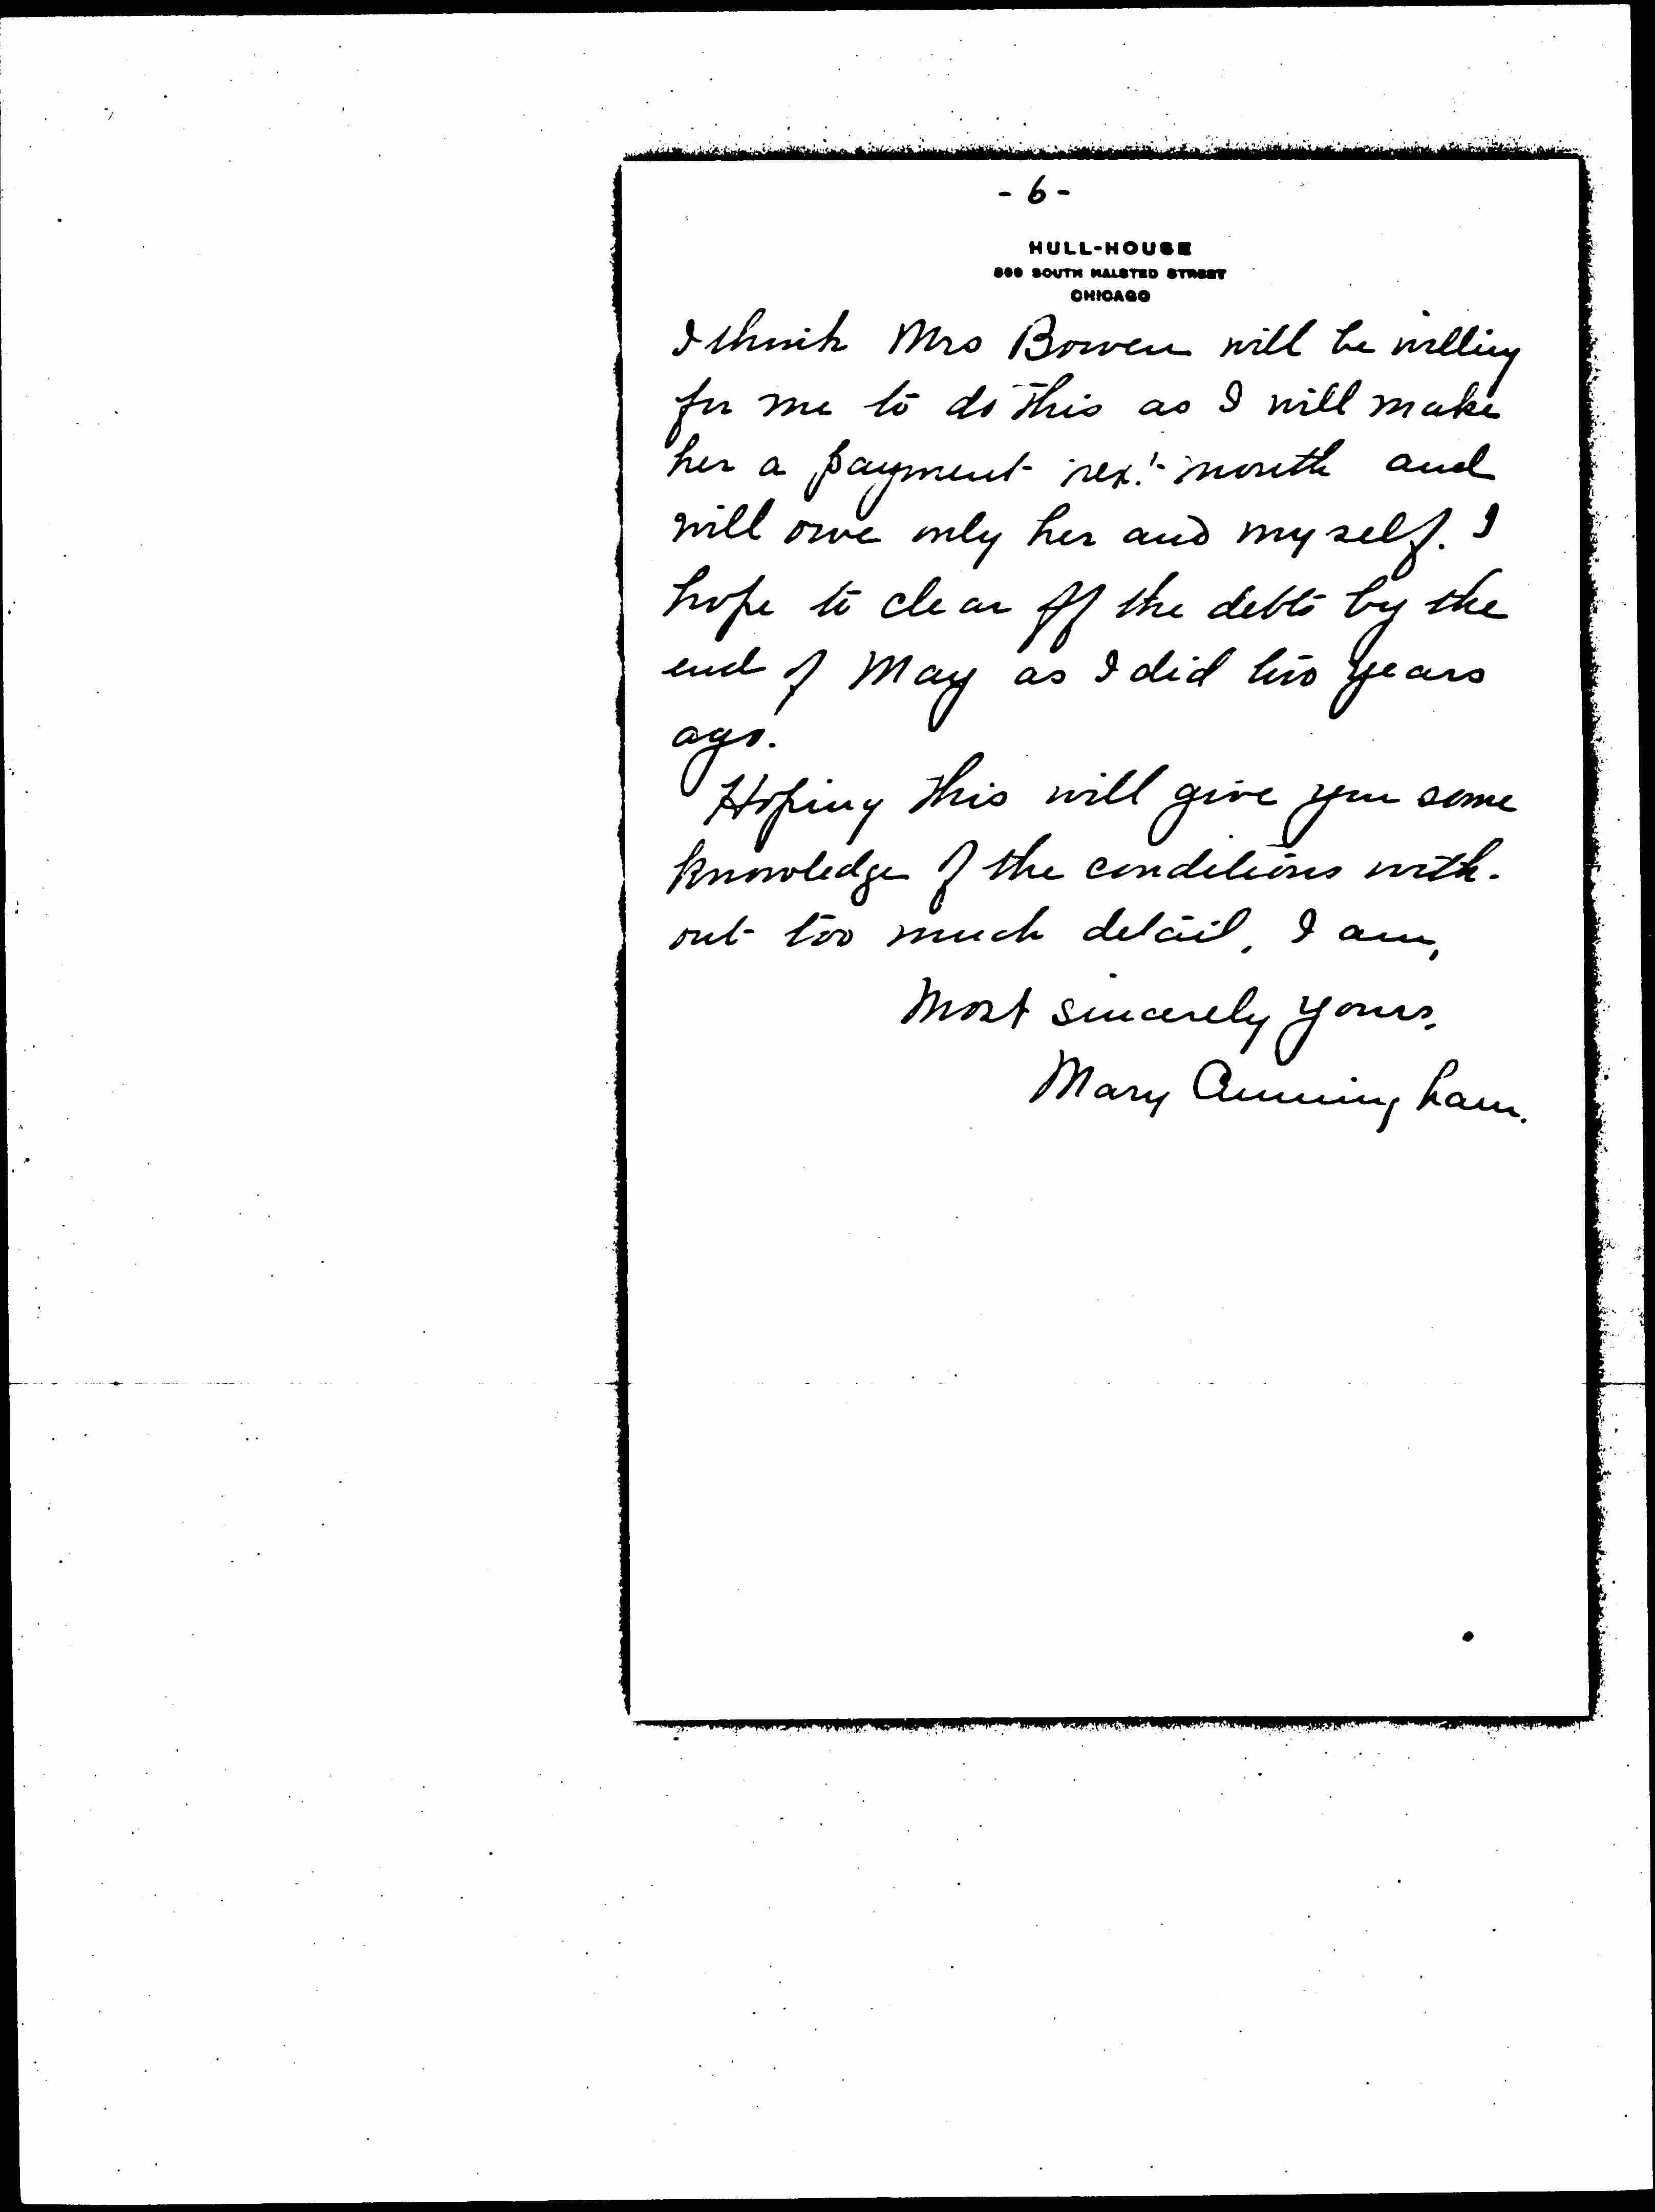 - 6 -
HULL-HOUSE
800 SOUTH HALSTED STREET
CHICAGO
I think Mrs Bowen will be willing
for me to do this as I will make
her a payment next month and
will owe only her and myself. I
hope to clear off the debts by the
end of May as I did two years
ago.
Hoping this will give you some
knowledge of the conditions with-
out too much detail, I am,
Most sincerely yours,
Mary Cunningham.